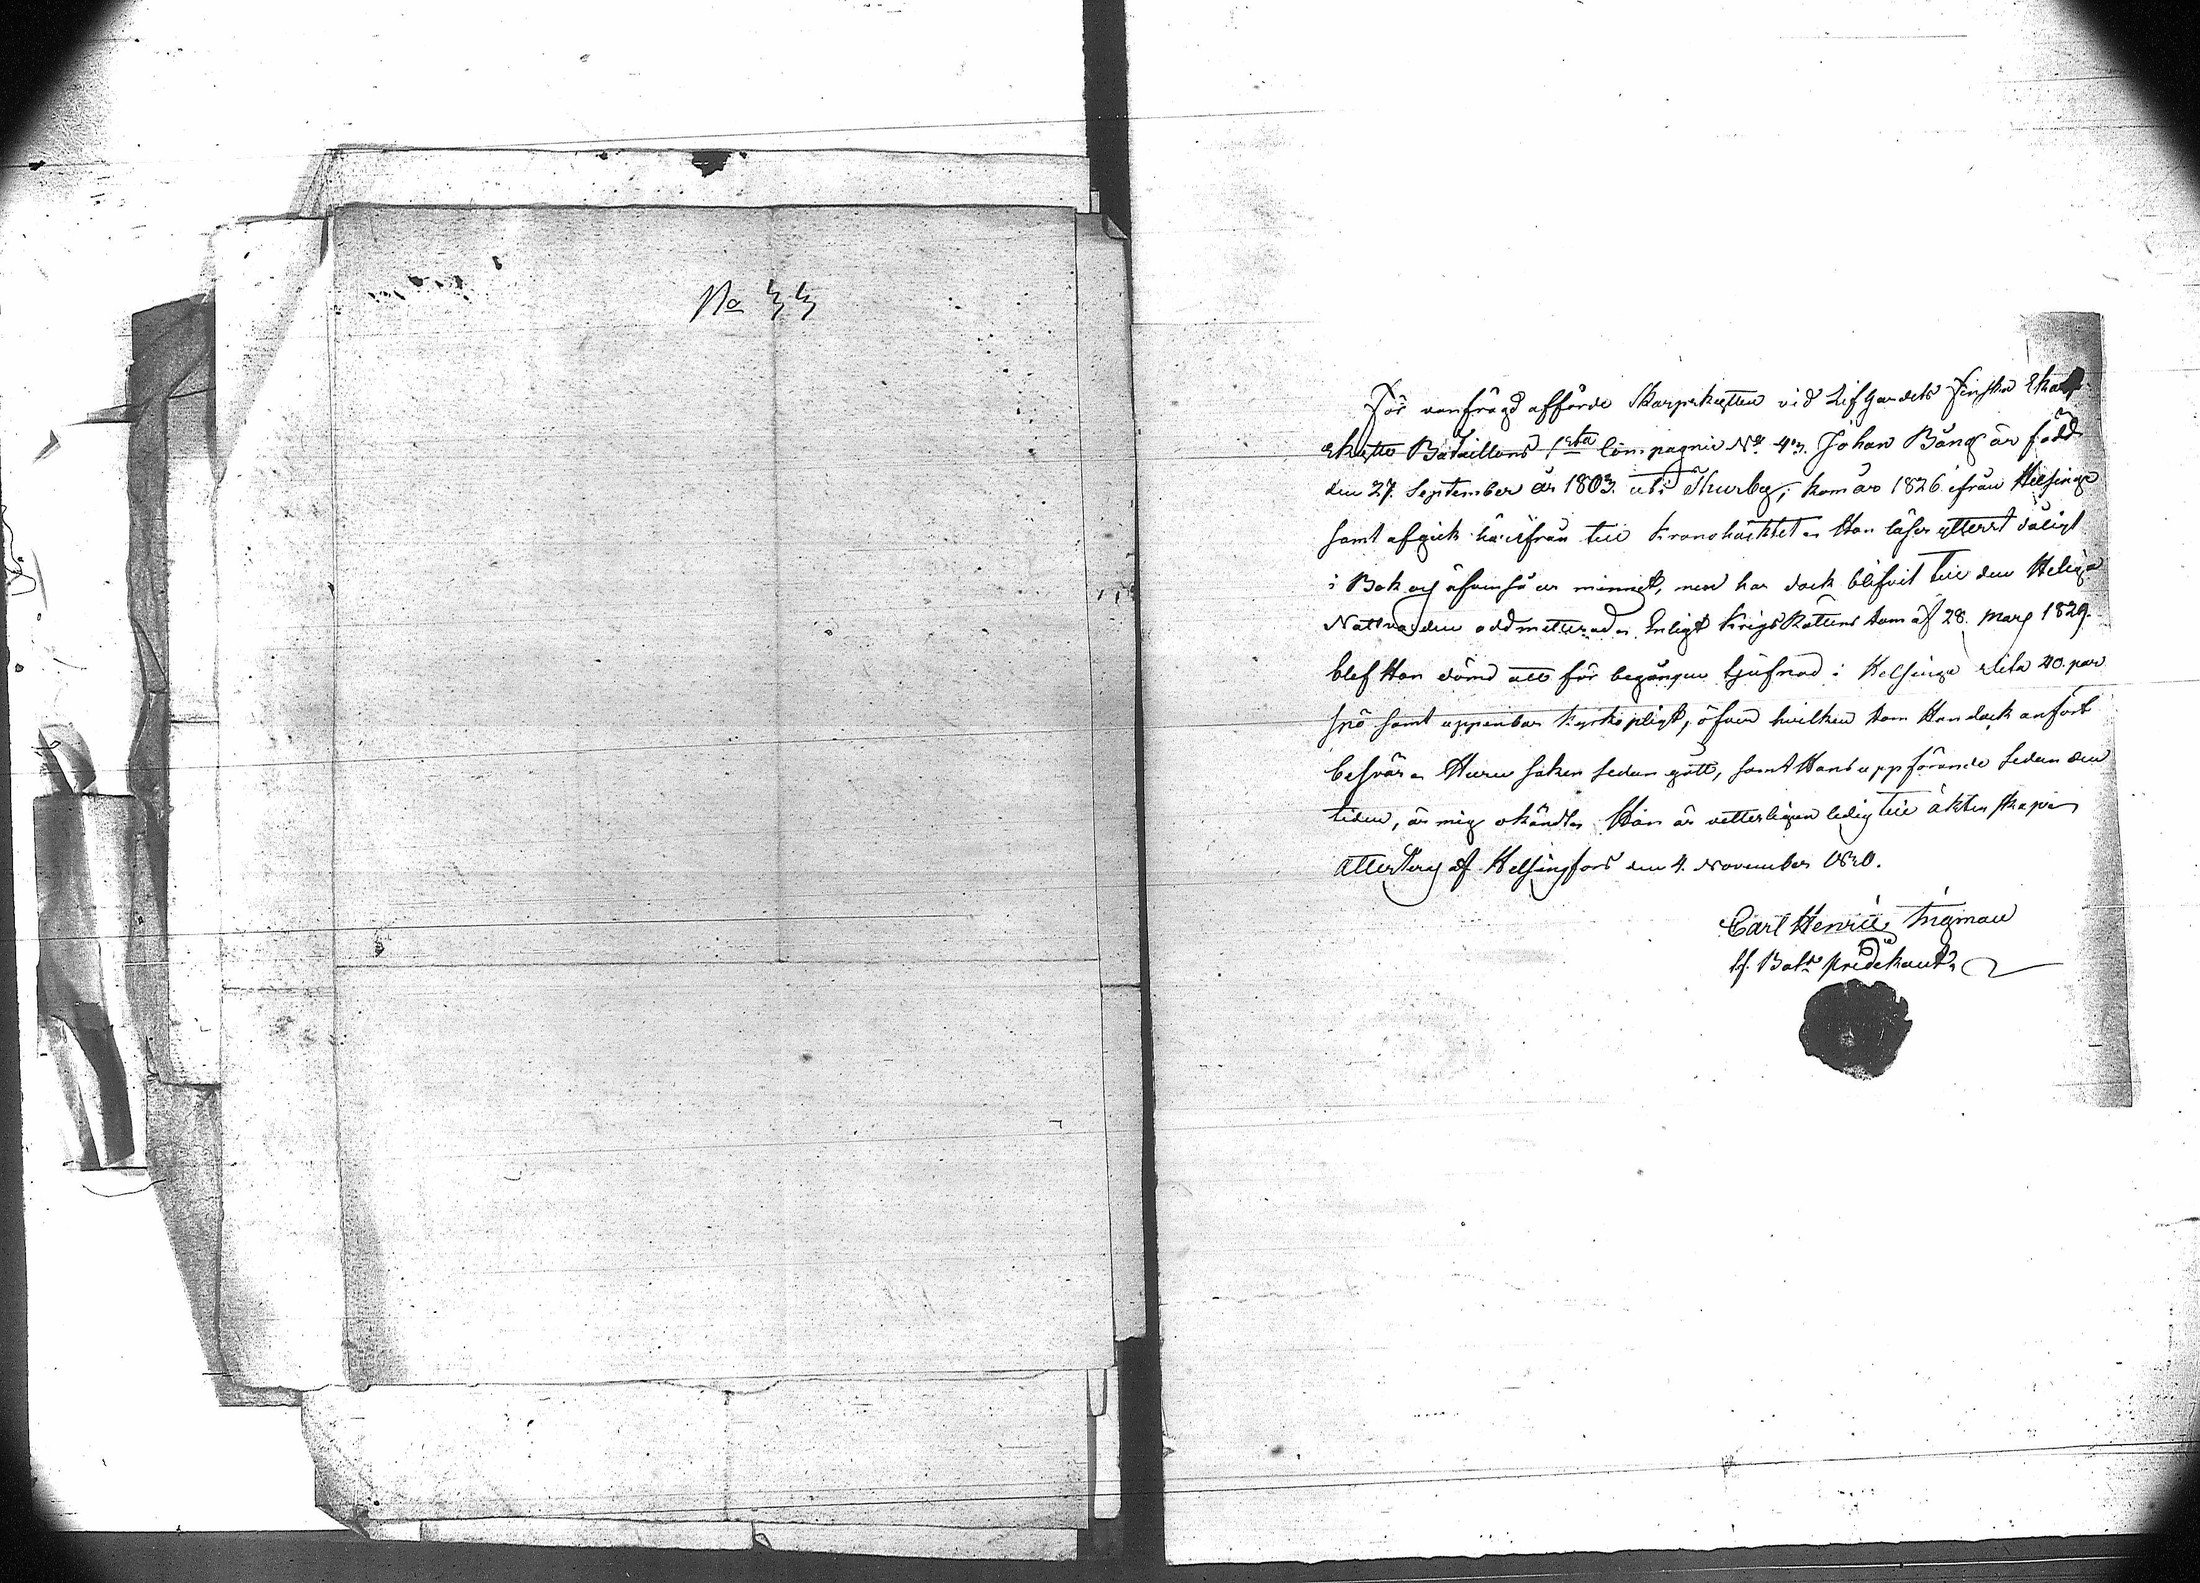 No 44
För vanfrägd afförde Skarpskytten vid Lif Gardets Finska Skarp
skytte Bataillons 1sta Compagnie No 43. Johan Bång är född
den 27. September år 1803. uti Thurby, kom år 1826 ifrån Helsinge
samt afgick härifrån till Kronohäktet. Han läser ytterst dåligt
i Bok och äfvenså ur minnet, men har dock blifvit till den Heliga
Nattvarden admitterad. Enligt KrigsRättens dom af 28. Mars 1829.
blef Han dömd att för begången tjufnad i Helsinge slita 40. par
spö samt uppenbar kyrkoplight, öfver hvilken dom Han dock anfört
besvär. Huru saken sedan gått, samt Hans uppförande sedan den
tiden, är mig okändt. Han är vetterligen ledig till äktenskap.
Attesteras af Helsingfors den 4. November 1830.
Carl Henric Ingman
tf. Bat: Predikant.